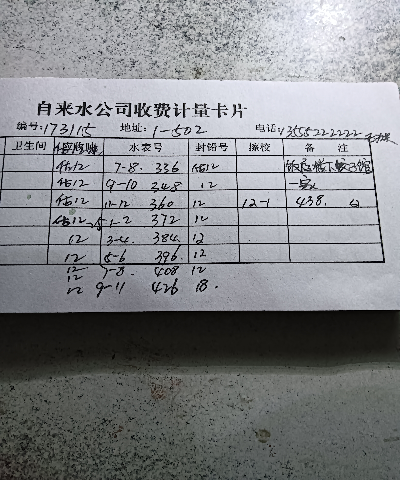 自来水公司收费计量卡片
编号:173115 地址: 1-502 电话: 13555222222
卫生间 水表号 封铅号 擦校 备 注
估12 7-8. 336 估12
估12 9-10 348 12 一家
估12 11-12 360 12 12-1 438.
估12 1-2 372 12
12 3-4. 384. 12
12 5-6 396. 12
12 7-8. 408 12
12 9-11 426 18.